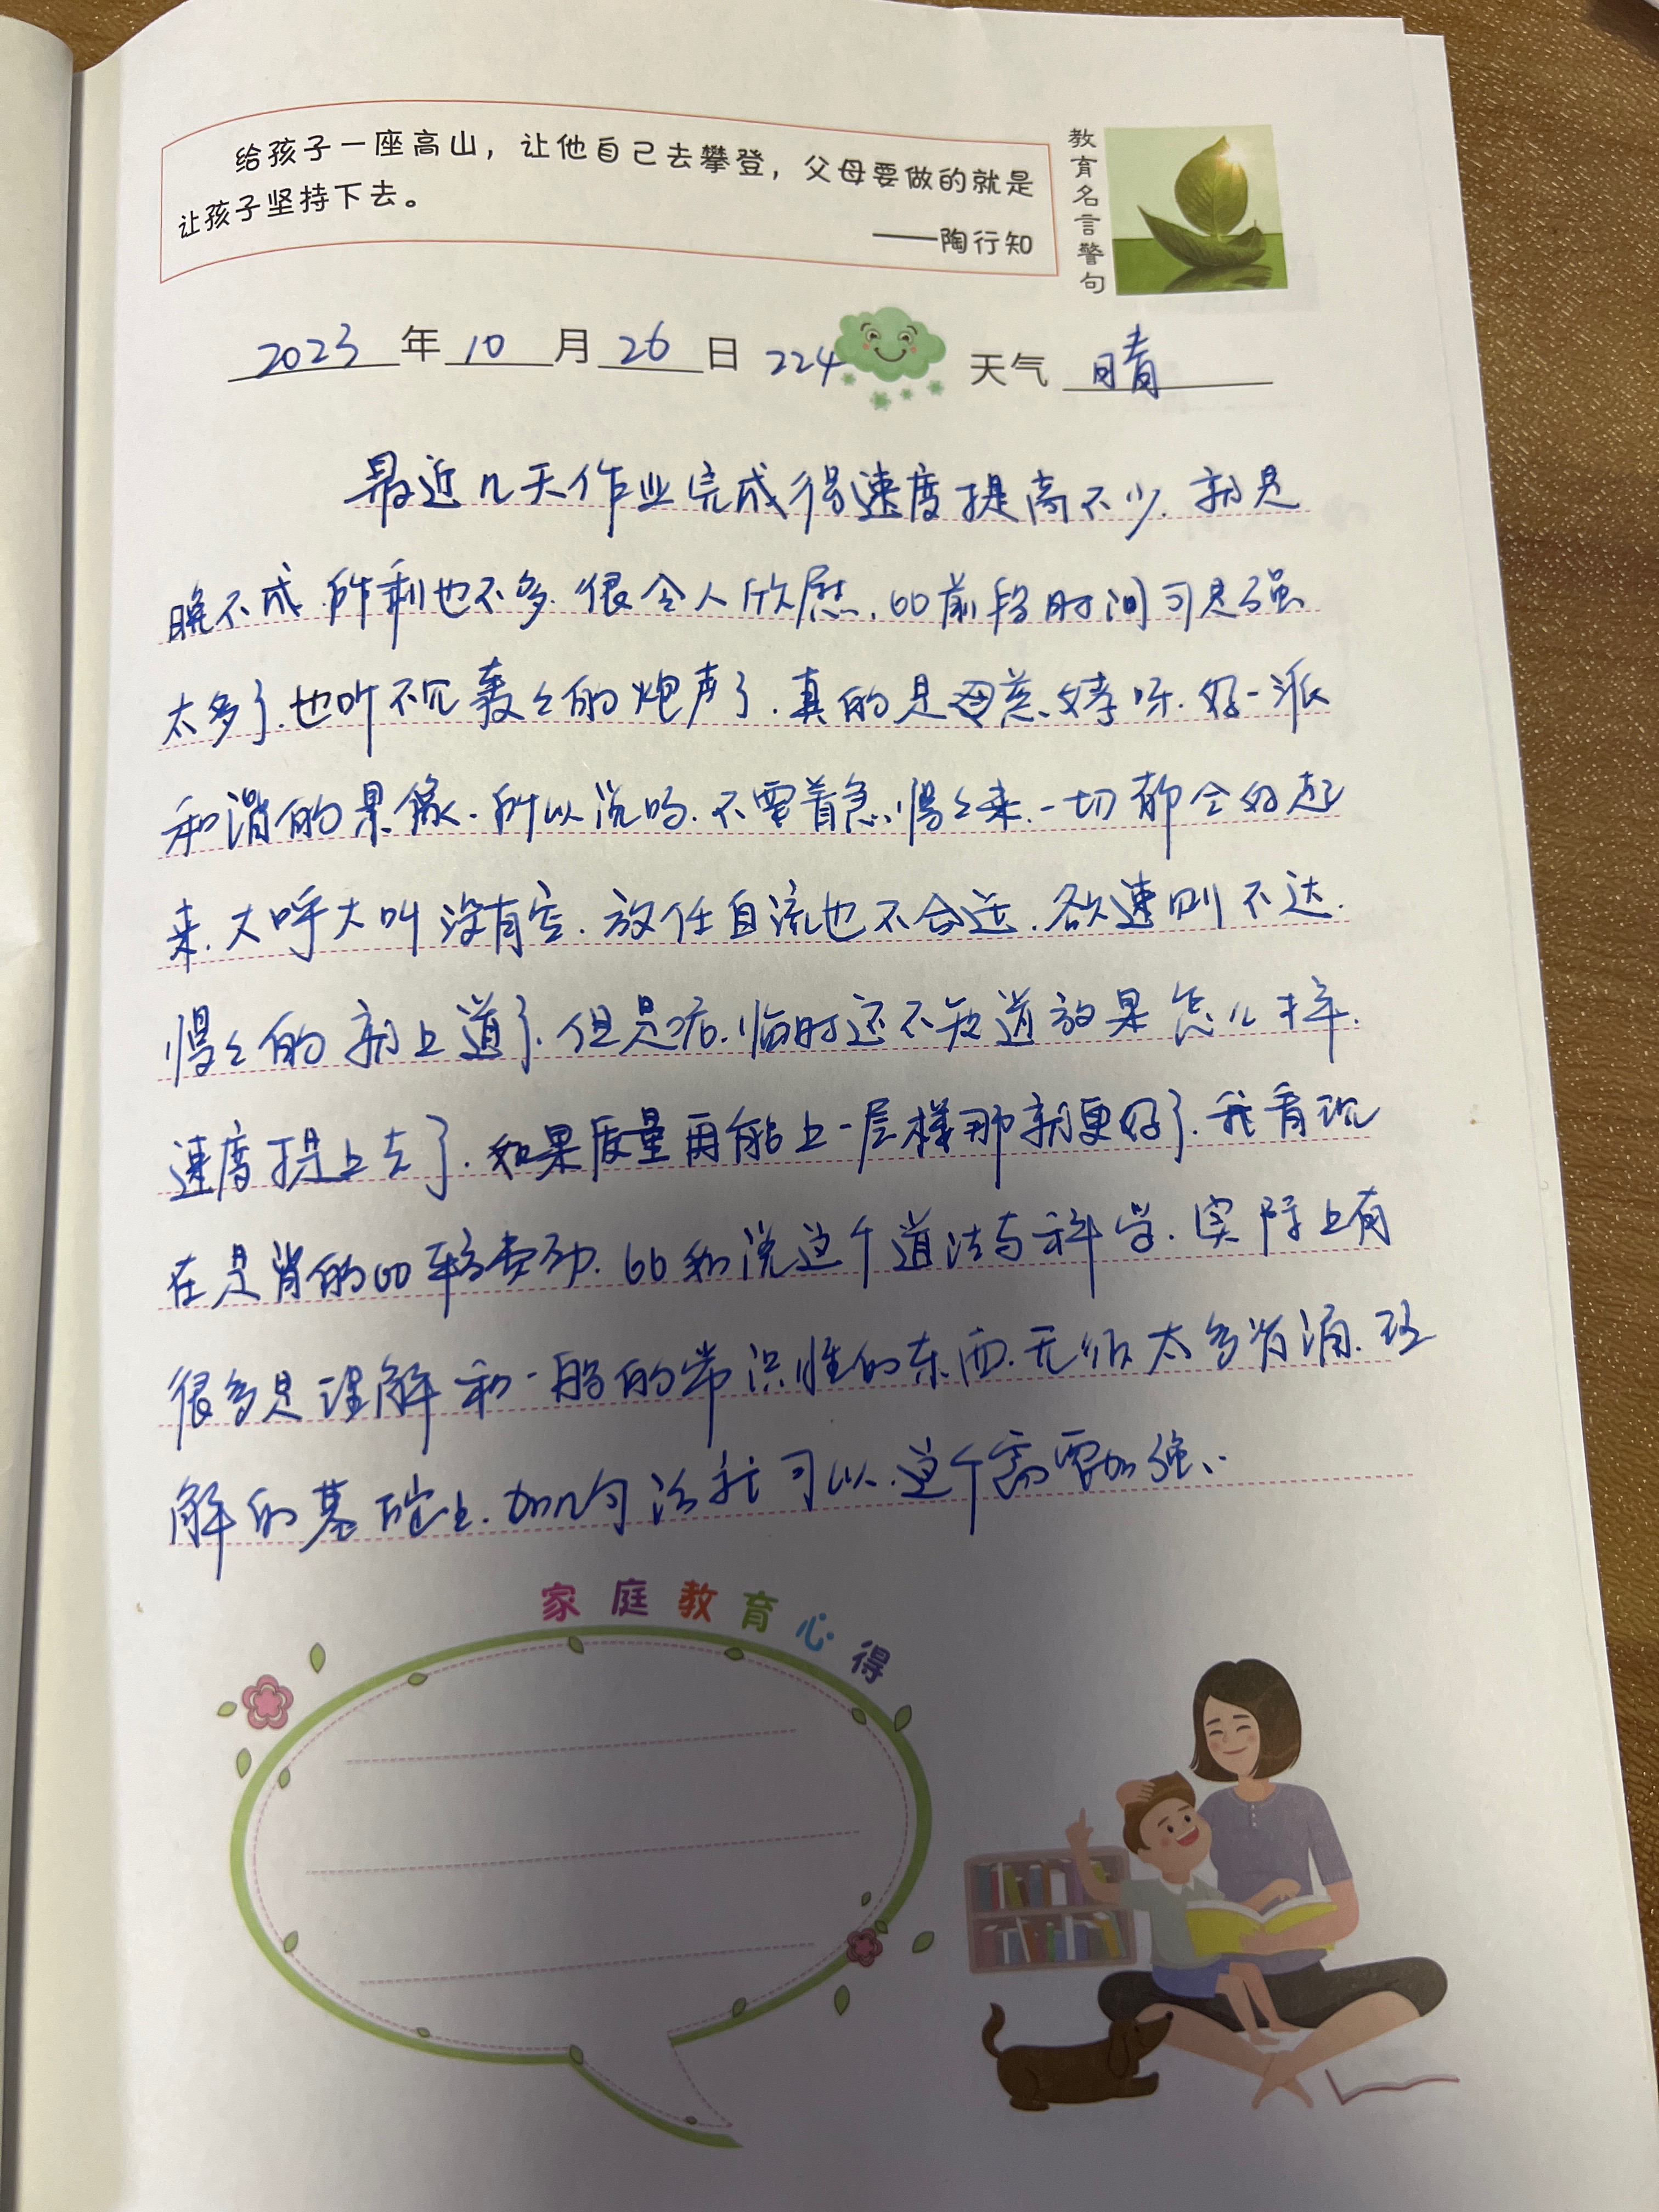 给孩子一座高山，让他自己去攀登，父母要做的就是
让孩子坚持下去。
——陶行知
教育名言警句
2023年10月26日 224 天气 晴
最近几天作业完成得速度提高不少.就是
晚不成.所剩也不多.很令人欣慰.比前段时间可是强
太多了.也听不见轰々的炮声了.真的是母慈女孝呀.好一派
和谐的景像.所以说吗.不要着急.慢々来.一切都会好起
来.大呼大叫没有空.放任自流也不合适.欲速则不达.
慢々的就上道了.但是呢.临时还不知道效果怎么样.
速度提上去了.如果质量再能上一层楼那就更好了.我看现
在是背的比较费劲.比如说这个道法与科学.实际上有
很多是理解和一般的常识性的东西.无须太多背诵.理
解的基础上.加几句话就可以.这个需要加强..
家庭教育心得